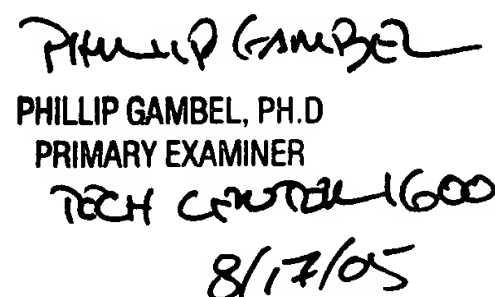 PHILLIP GAMBEL
PHILLIP GAMBEL, PH.D
PRIMARY EXAMINER
TECH CENTER 1600
8/17/05